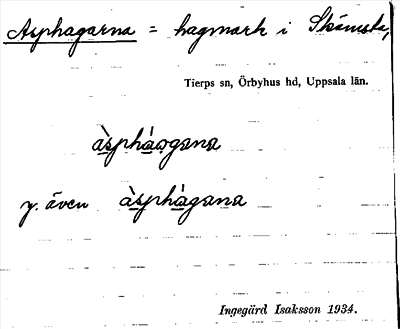 Asphagarna = hagmark i Skämsta,
Tierps sn, Örbyhus hd, Uppsala län.
àspháogana
y. även àsphàgana
Ingegärd Isaksson 1934.